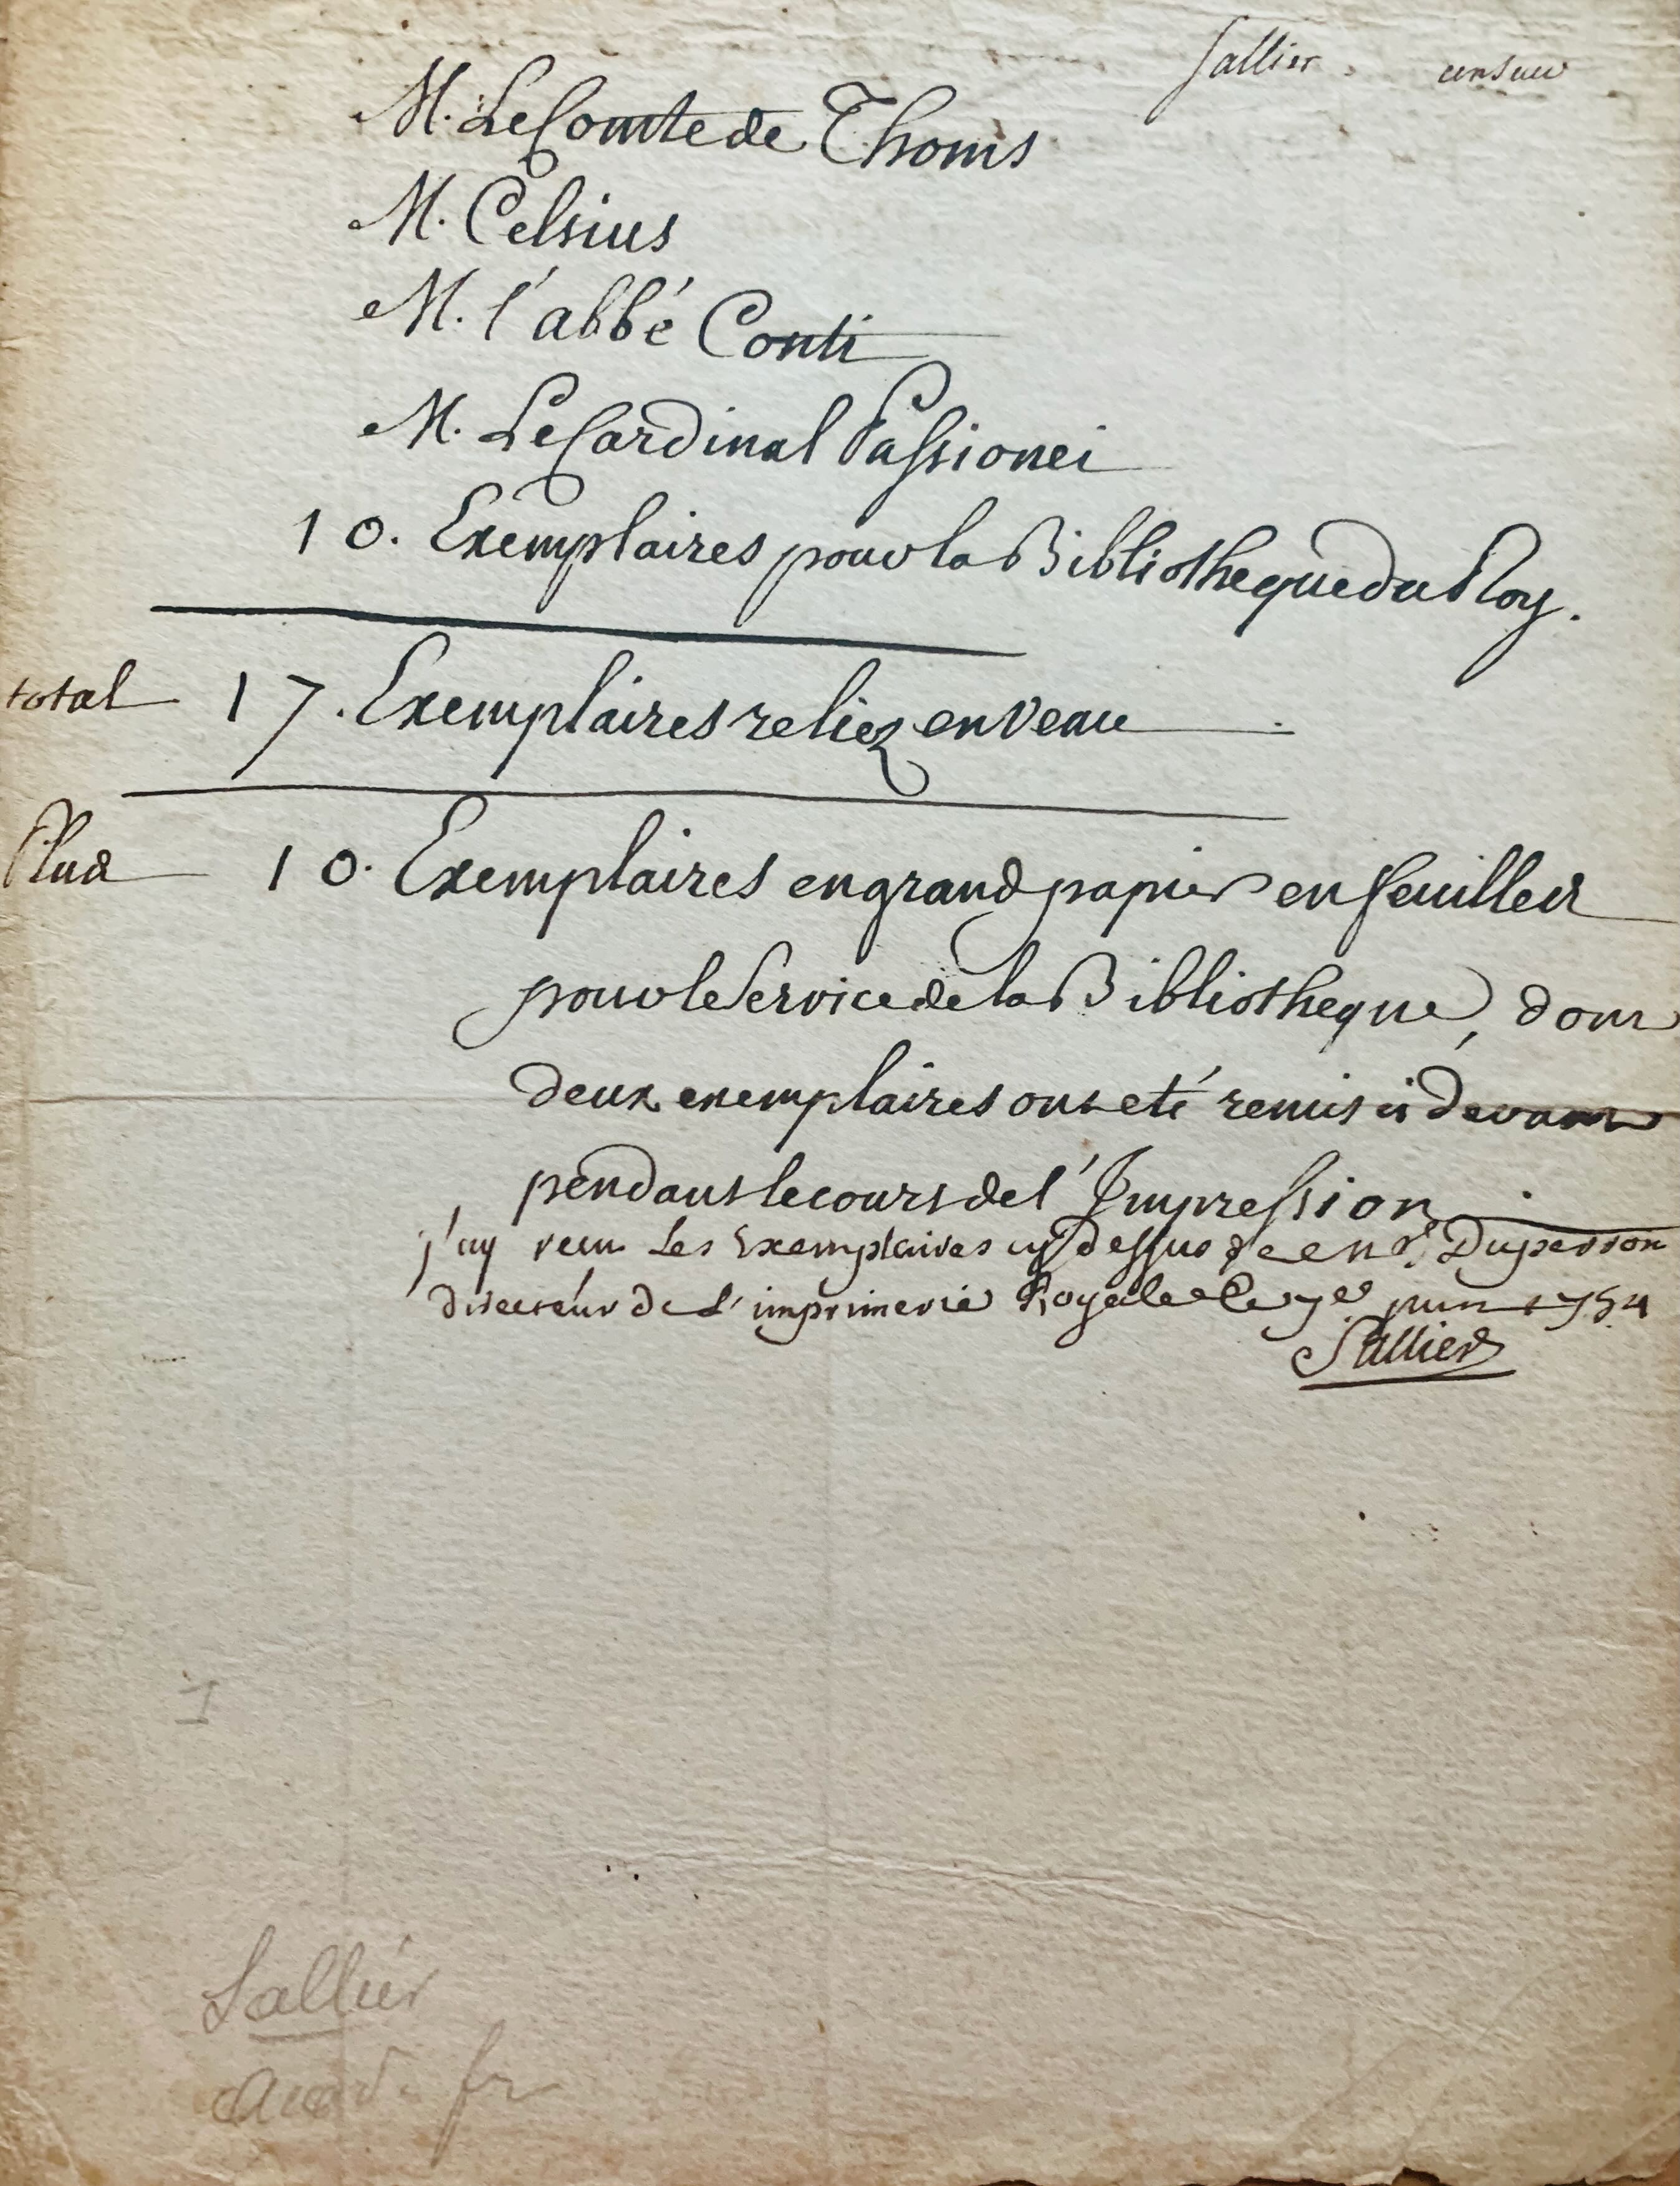 Sallier censeur
M. Le Comte de Thoms
M. Celsius
M. l'abbé Conti
M. Le Cardinal Passionei
10. Exemplaires pour la Bibliotheque du Roy.
total 17. Exemplaires reliez en veau
Plus 10. Exemplaires en grand papier en feuilles
pour le Service de la Bibliotheque, dont
deux exemplaires ont eté remis ci devant
pendant le cours de l'Impression.
j'ay receu Les Exemplaires cy dessus de Mr. Duperron
directeur de L'imprimerie Royale Le 7e juin 1754
Sallier
Sallier
Acad. fr